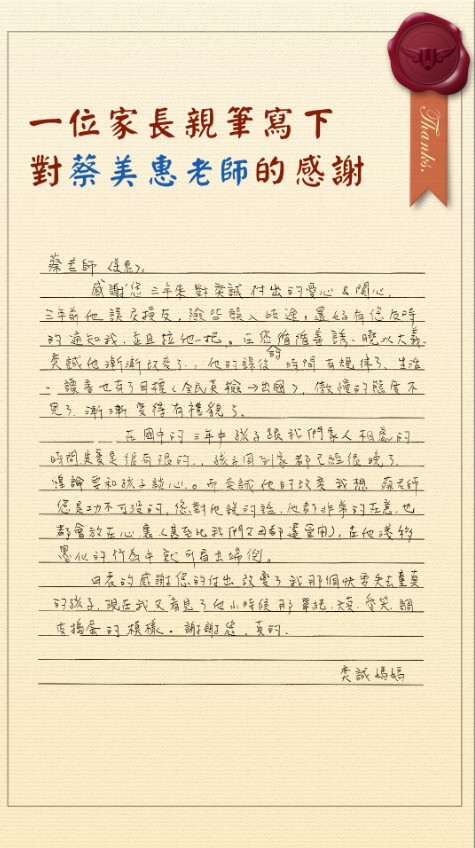 一位家長親筆寫下
對蔡美惠老師的感謝
Thanks.
蔡老師(美惠):
感謝您三年來對奕誠付出的愛心&關心,
三年前他誤交損友,險些誤入歧途,還好有您及時
的通知我,並且拉他一把。在您循循善誘、曉以大義,
奕誠他漸漸改變了,他的課後的時間有規律了、生活
、讀書也有了目標(全民英檢→出國),傲慢的態度不
見了,漸漸變得有禮貌了。
在國中的三年中孩子跟我們家人相處的
時間其實是很有限的,孩子回到家都已經很晚了,
遑論要和孩子談心。而奕誠他的改變我想蔡老師
您是功不可沒的,您對他說的話,他都非常的在意,也
都會放在心裏(甚至比我們父母都還管用),在他潛移
墨化的行為中就可看出端倪。
由衷的感謝您的付出改變了我那個快要失去童真
的孩子,現在我又看見了他小時候那單純、愛笑、調
皮搗蛋的模樣。謝謝您,真的.
奕誠媽媽